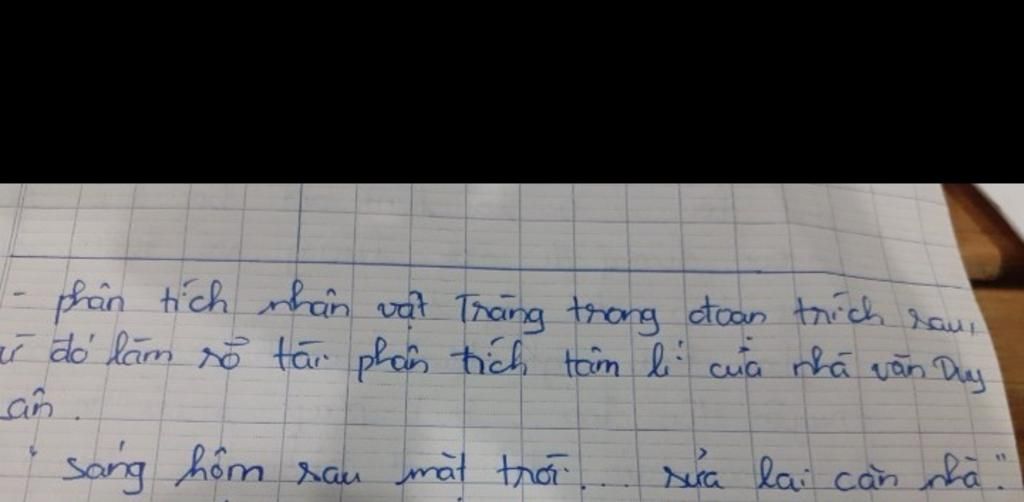 - phân tích nhân vật Tràng trong đoạn trích sau,
từ đó làm rõ tài phân tích tâm lí của nhà văn Duy
ân.
" sáng hôm sau mặt trời... sửa lại căn nhà."